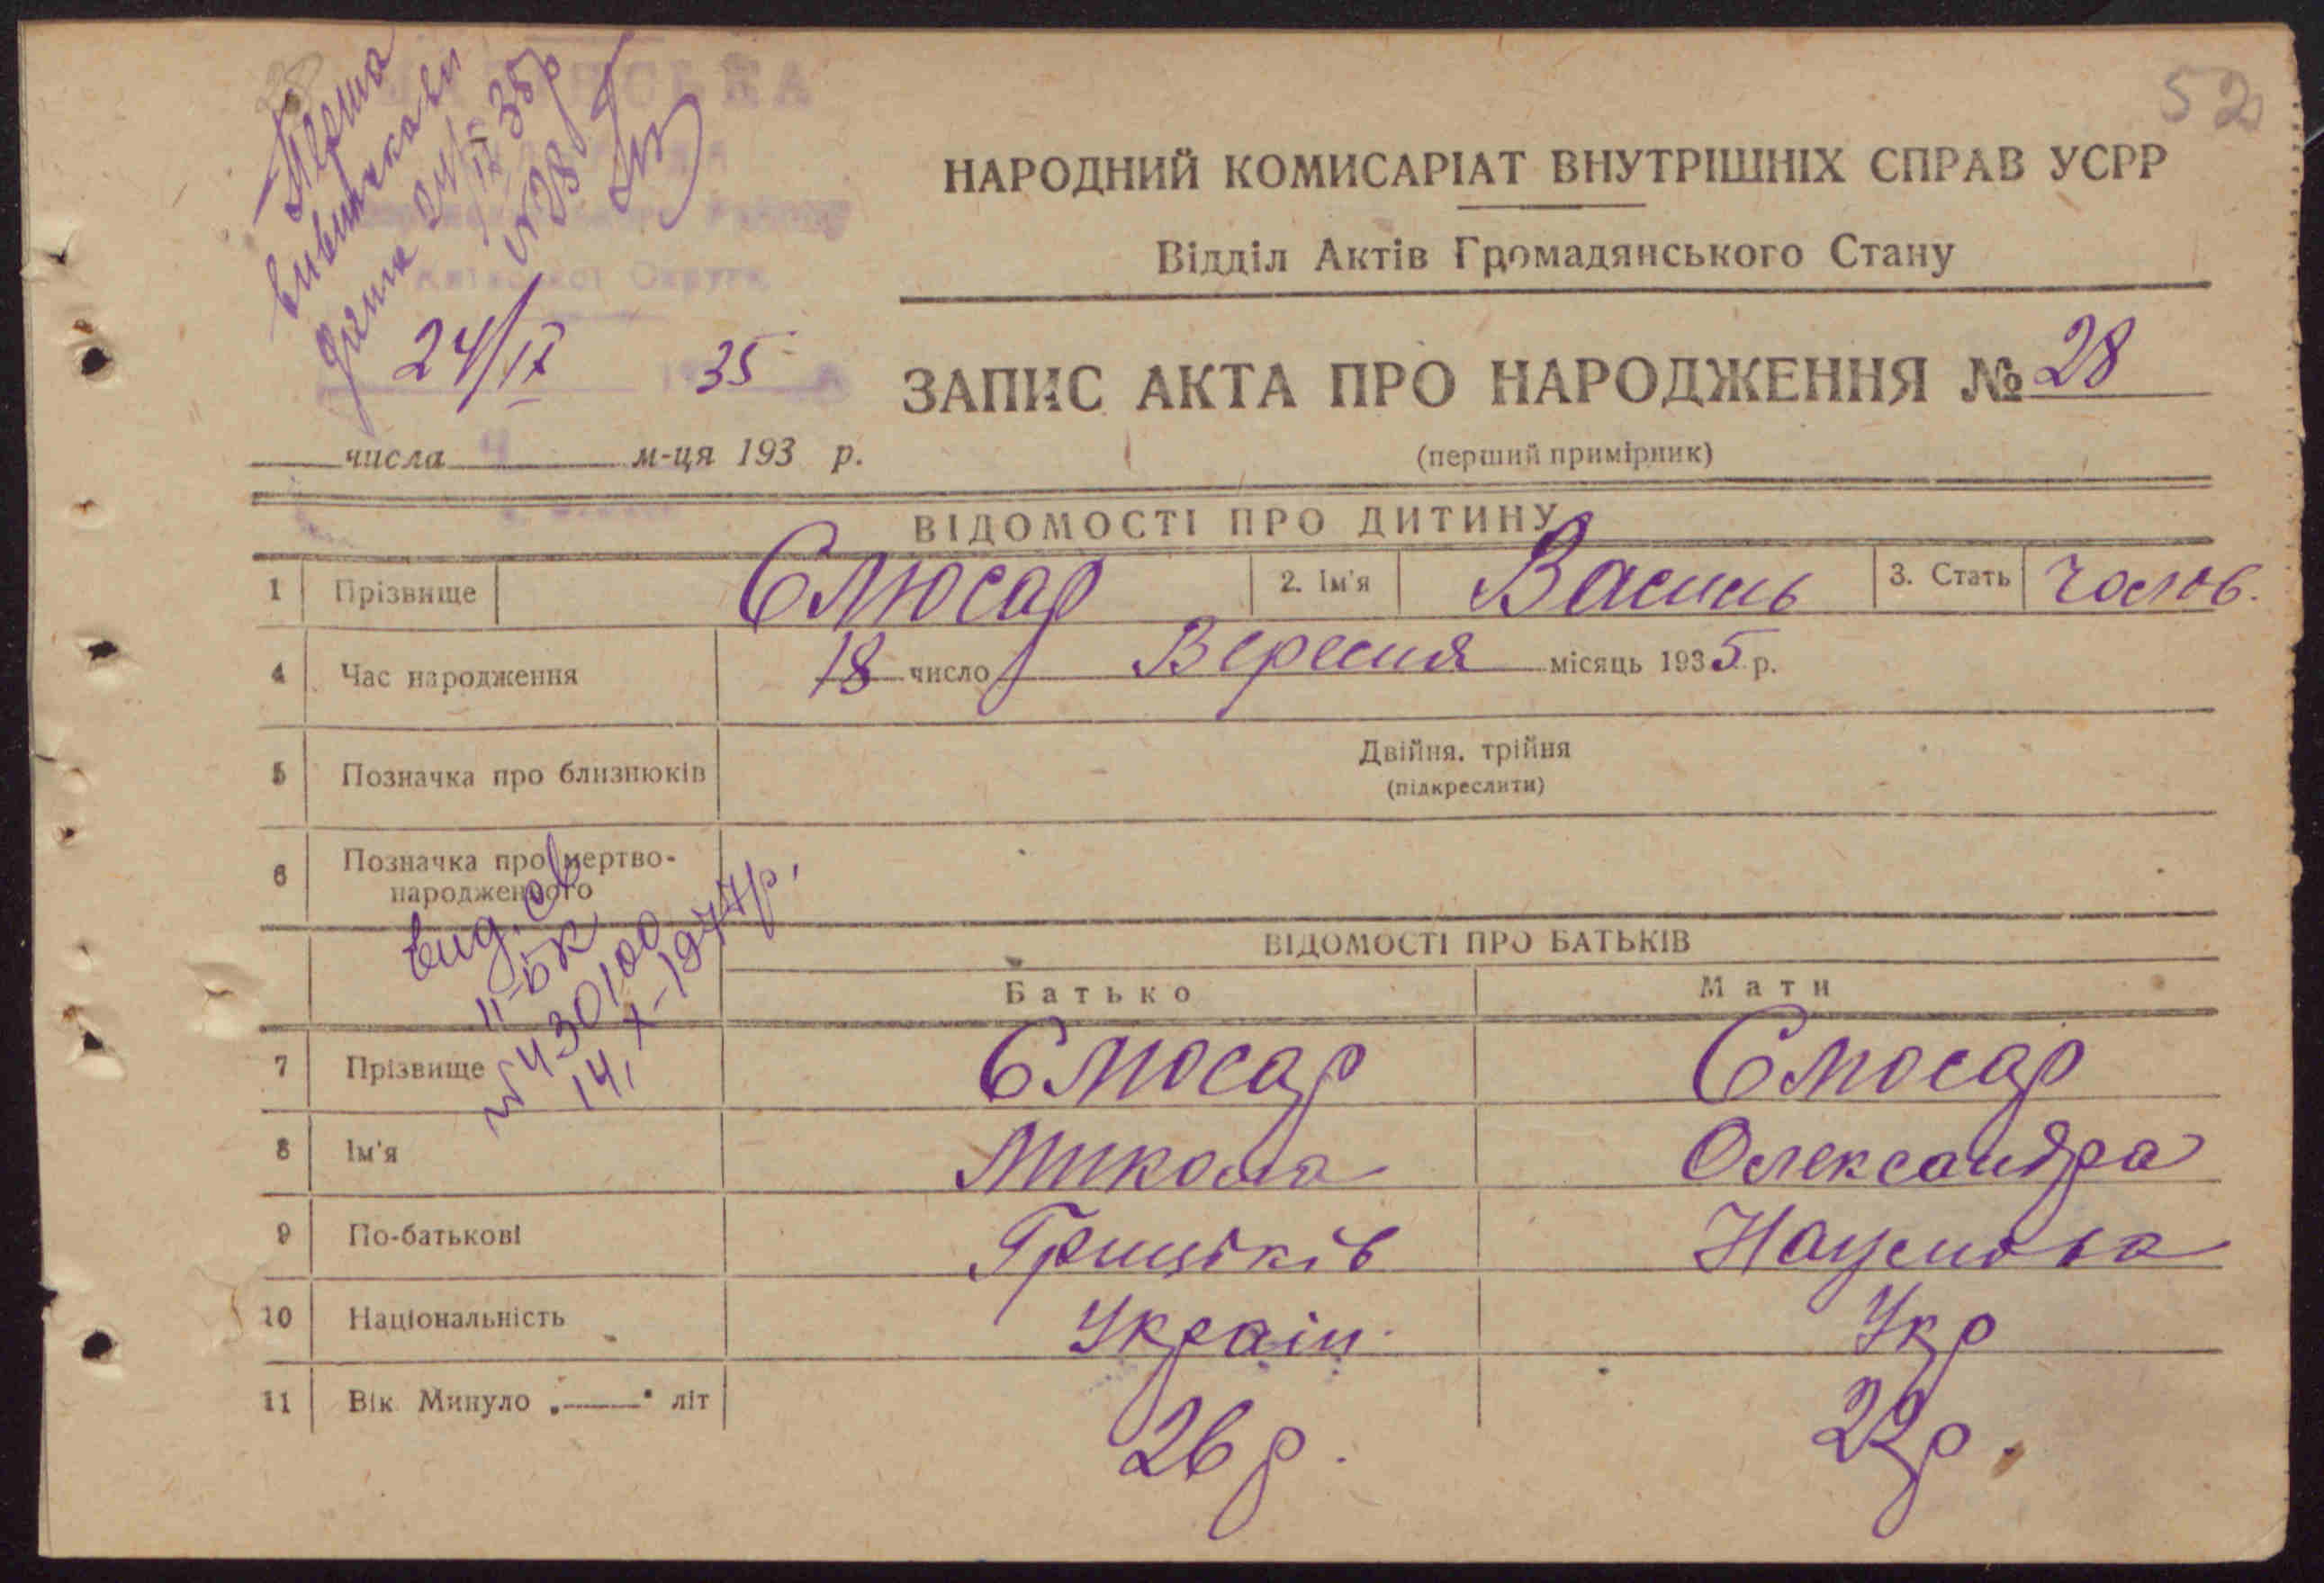 52
28
НАРОДНИЙ КОМИСАРІАТ ВНУТРІШНІХ СПРАВ УСРР
Відділ Актів Громадянського Стану
24/IX 35р
№28
Округи
24/IX 35
ЗАПИС АКТА ПРО НАРОДЖЕННЯ № 28
числа м-ця 193 р.
(перший примірник)
ВІДОМОСТІ ПРО ДИТИНУ
1 Прізвище Слюсар 2. Ім'я Василь 3. Стать Чолов.
4 Час народження 18 число Вересня місяць 1935 р.
5 Позначка про близнюків Двійня, трійня
(підкреслити)
6 Позначка про мертво-
народженого
вид. св
II-БК
№ 430100
14, X-1977р.
ВІДОМОСТІ ПРО БАТЬКІВ
Батько Мати
7 Прізвище Слюсар Слюсар
8 Ім'я Микола Олександра
9 По-батькові Грицьків Наумова
10 Національність Украін. Укр
11 Вік Минуло „—" літ 26 р. 22р.